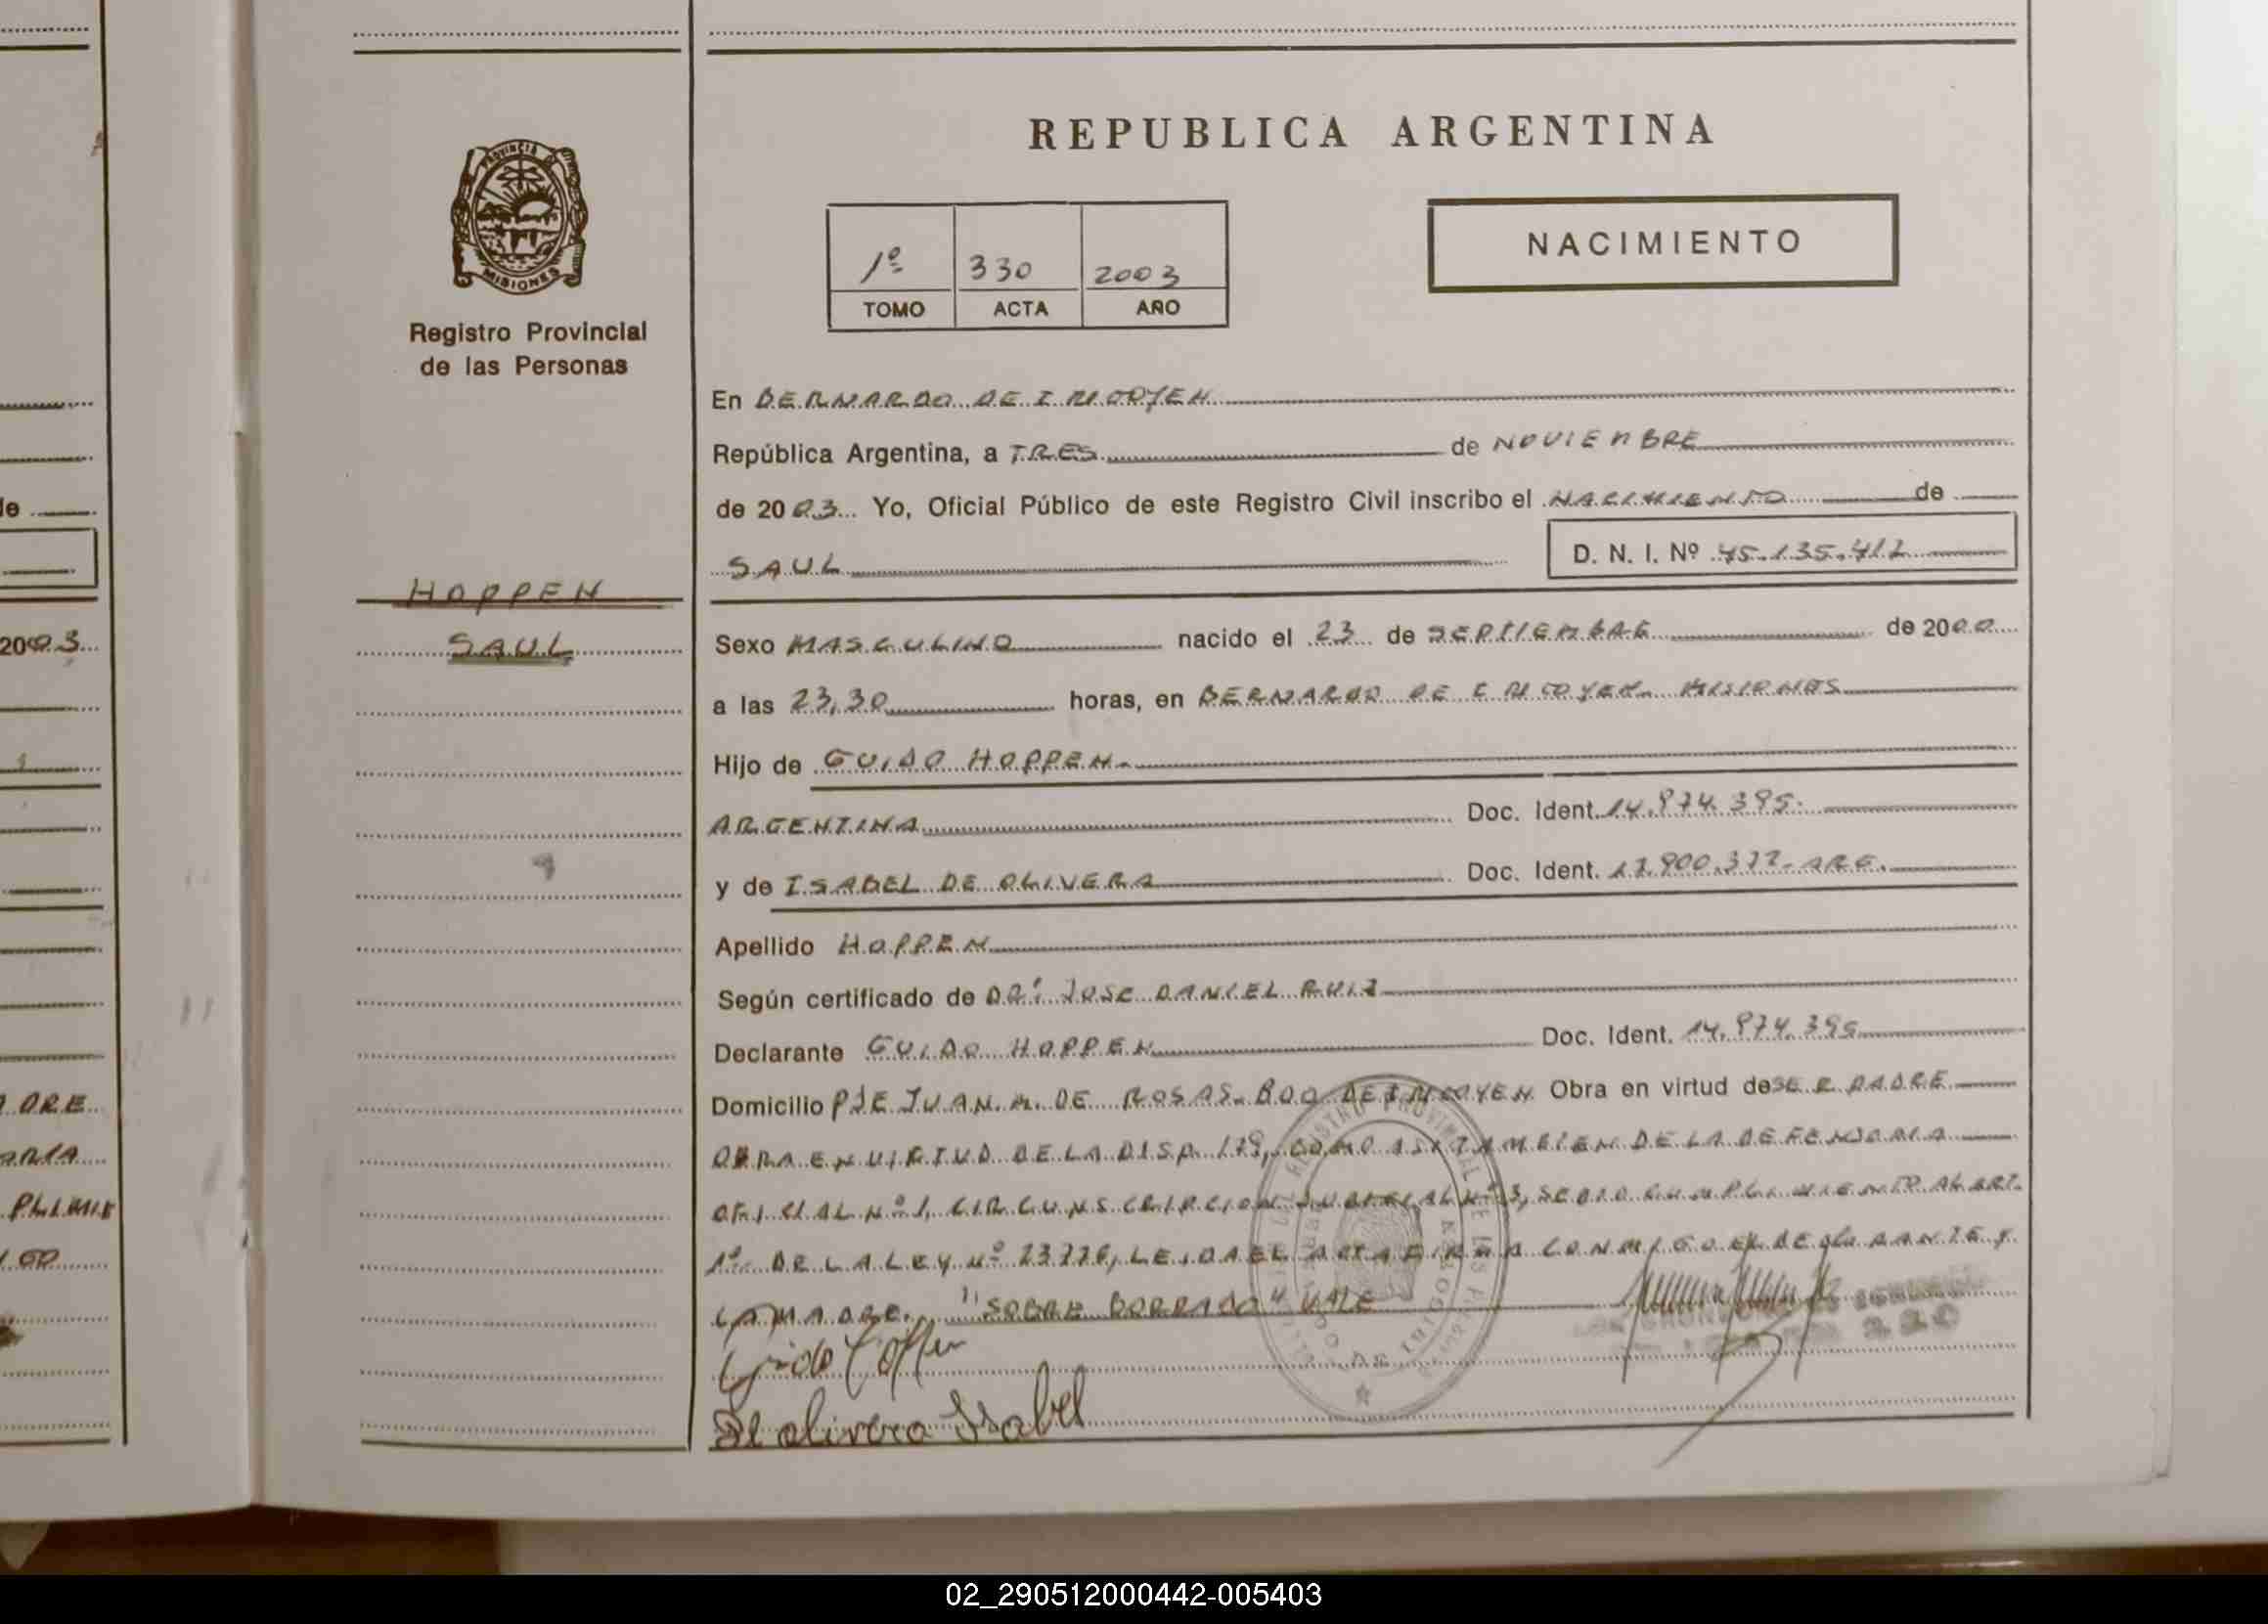 REPUBLICA ARGENTINA
PROVINCIA DE
MISIONES
Registro Provincial
de las Personas
1º 330 2003
TOMO ACTA AÑO
NACIMIENTO
En BERNARDO DE IRIGOYEN
República Argentina, a TRES de NOVIEMBRE
de 2003 Yo, Oficial Público de este Registro Civil inscribo el NACIMIENTO de
SAUL D. N. I. Nº 45.135.412
HOPPEN
SAUL
Sexo MASCULINO nacido el 23 de SEPTIEMBRE de 2000
a las 23,30 horas, en BERNARDO DE IRIGOYEN - MISIONES
Hijo de GUIDO HOPPEN.
ARGENTINA Doc. Ident. 14.974.395.
y de ISABEL DE OLIVERA Doc. Ident. ARG.
Apellido HOPPEN
Según certificado de DR: JOSE DANIEL RUIZ
Declarante GUIDO HOPPEN Doc. Ident. 14.974.395
Domicilio PJE JUAN M. DE ROSAS - BDO DE IRIGOYEN Obra en virtud de SER PADRE
OBRA EN VIRTUD DE LA DISP. 179, COMO ASI TAMBIEN DE LA DEFENSORIA
OFICIAL Nº 1, CIRCUNSCRIPCION JUDICIAL Nº 3, SE DIO CUMPLIMIENTO AL ART.
1º DE LA LEY Nº LEIDA EL ACTA FIRMA CONMIGO EL DECLARANTE Y
LA MADRE. "SOBRE BORRADO" VALE
Guido Hoppen
De olivera Isabel
de
2003
ORE
ARIA
PLIMIE
02_290512000442-005403